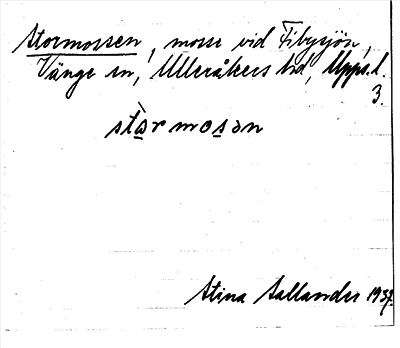 Stormossen, mosse vid Fibysjön,
Vänge sn, Ulleråkers hd, Upps. l.
3.
stòrmosan
Stina Sallander 1937.